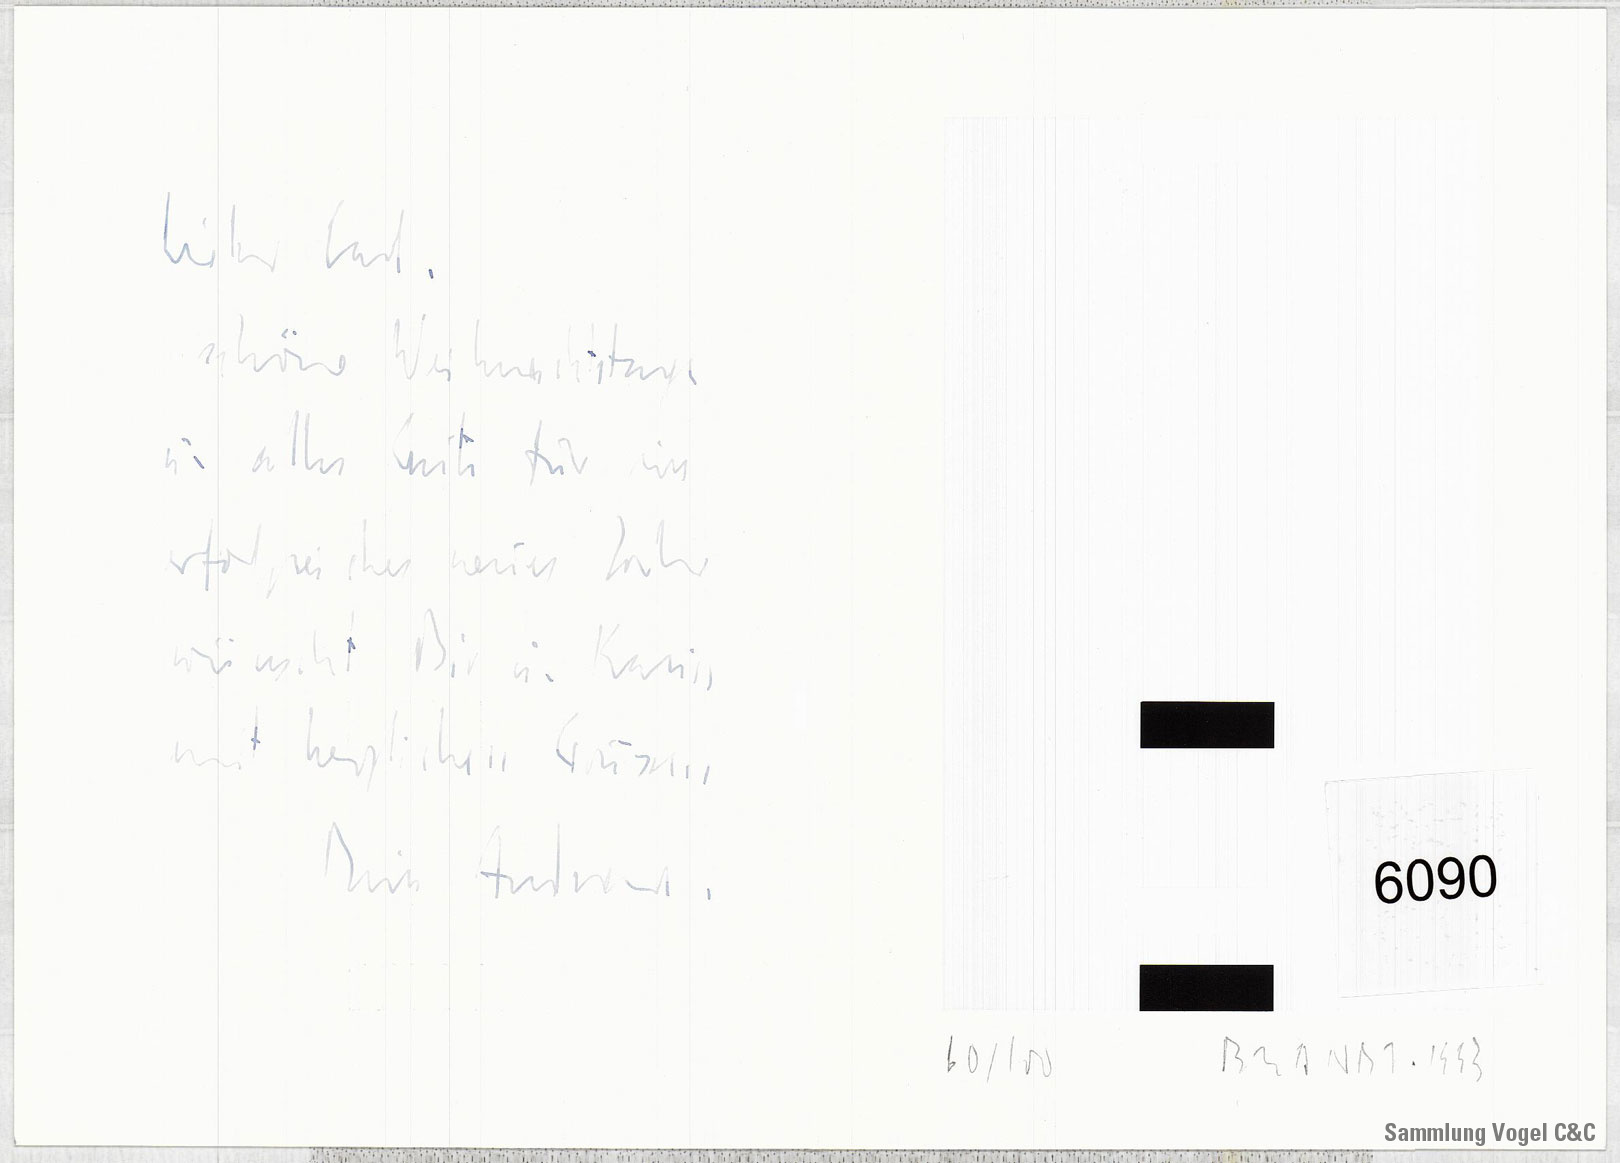 Lieber Carl.
schöne Weihnachtstage
u. alles Gute für ein
erfolgreiches neues Jahr
wünscht Dir u. Karin,
mit herzlichen Grüßen,
Dein Andreas.
6090
60/100 BRANDT. 1993
Sammlung Vogel C&C